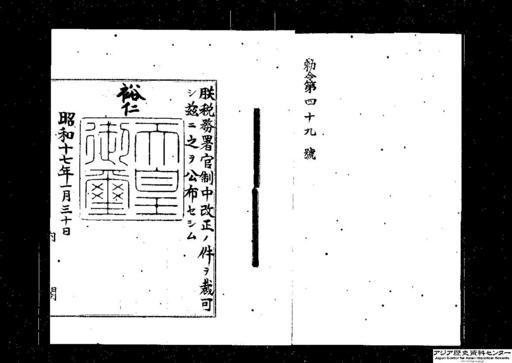 勅令第四十九號
朕税務署官制中改正ノ件ヲ裁可
シ茲ニ之ヲ公布セシム
裕仁
天皇御璽
昭和十七年一月三十日
内閣
アジア歴史資料センター
Japan Center for Asian Historical Records